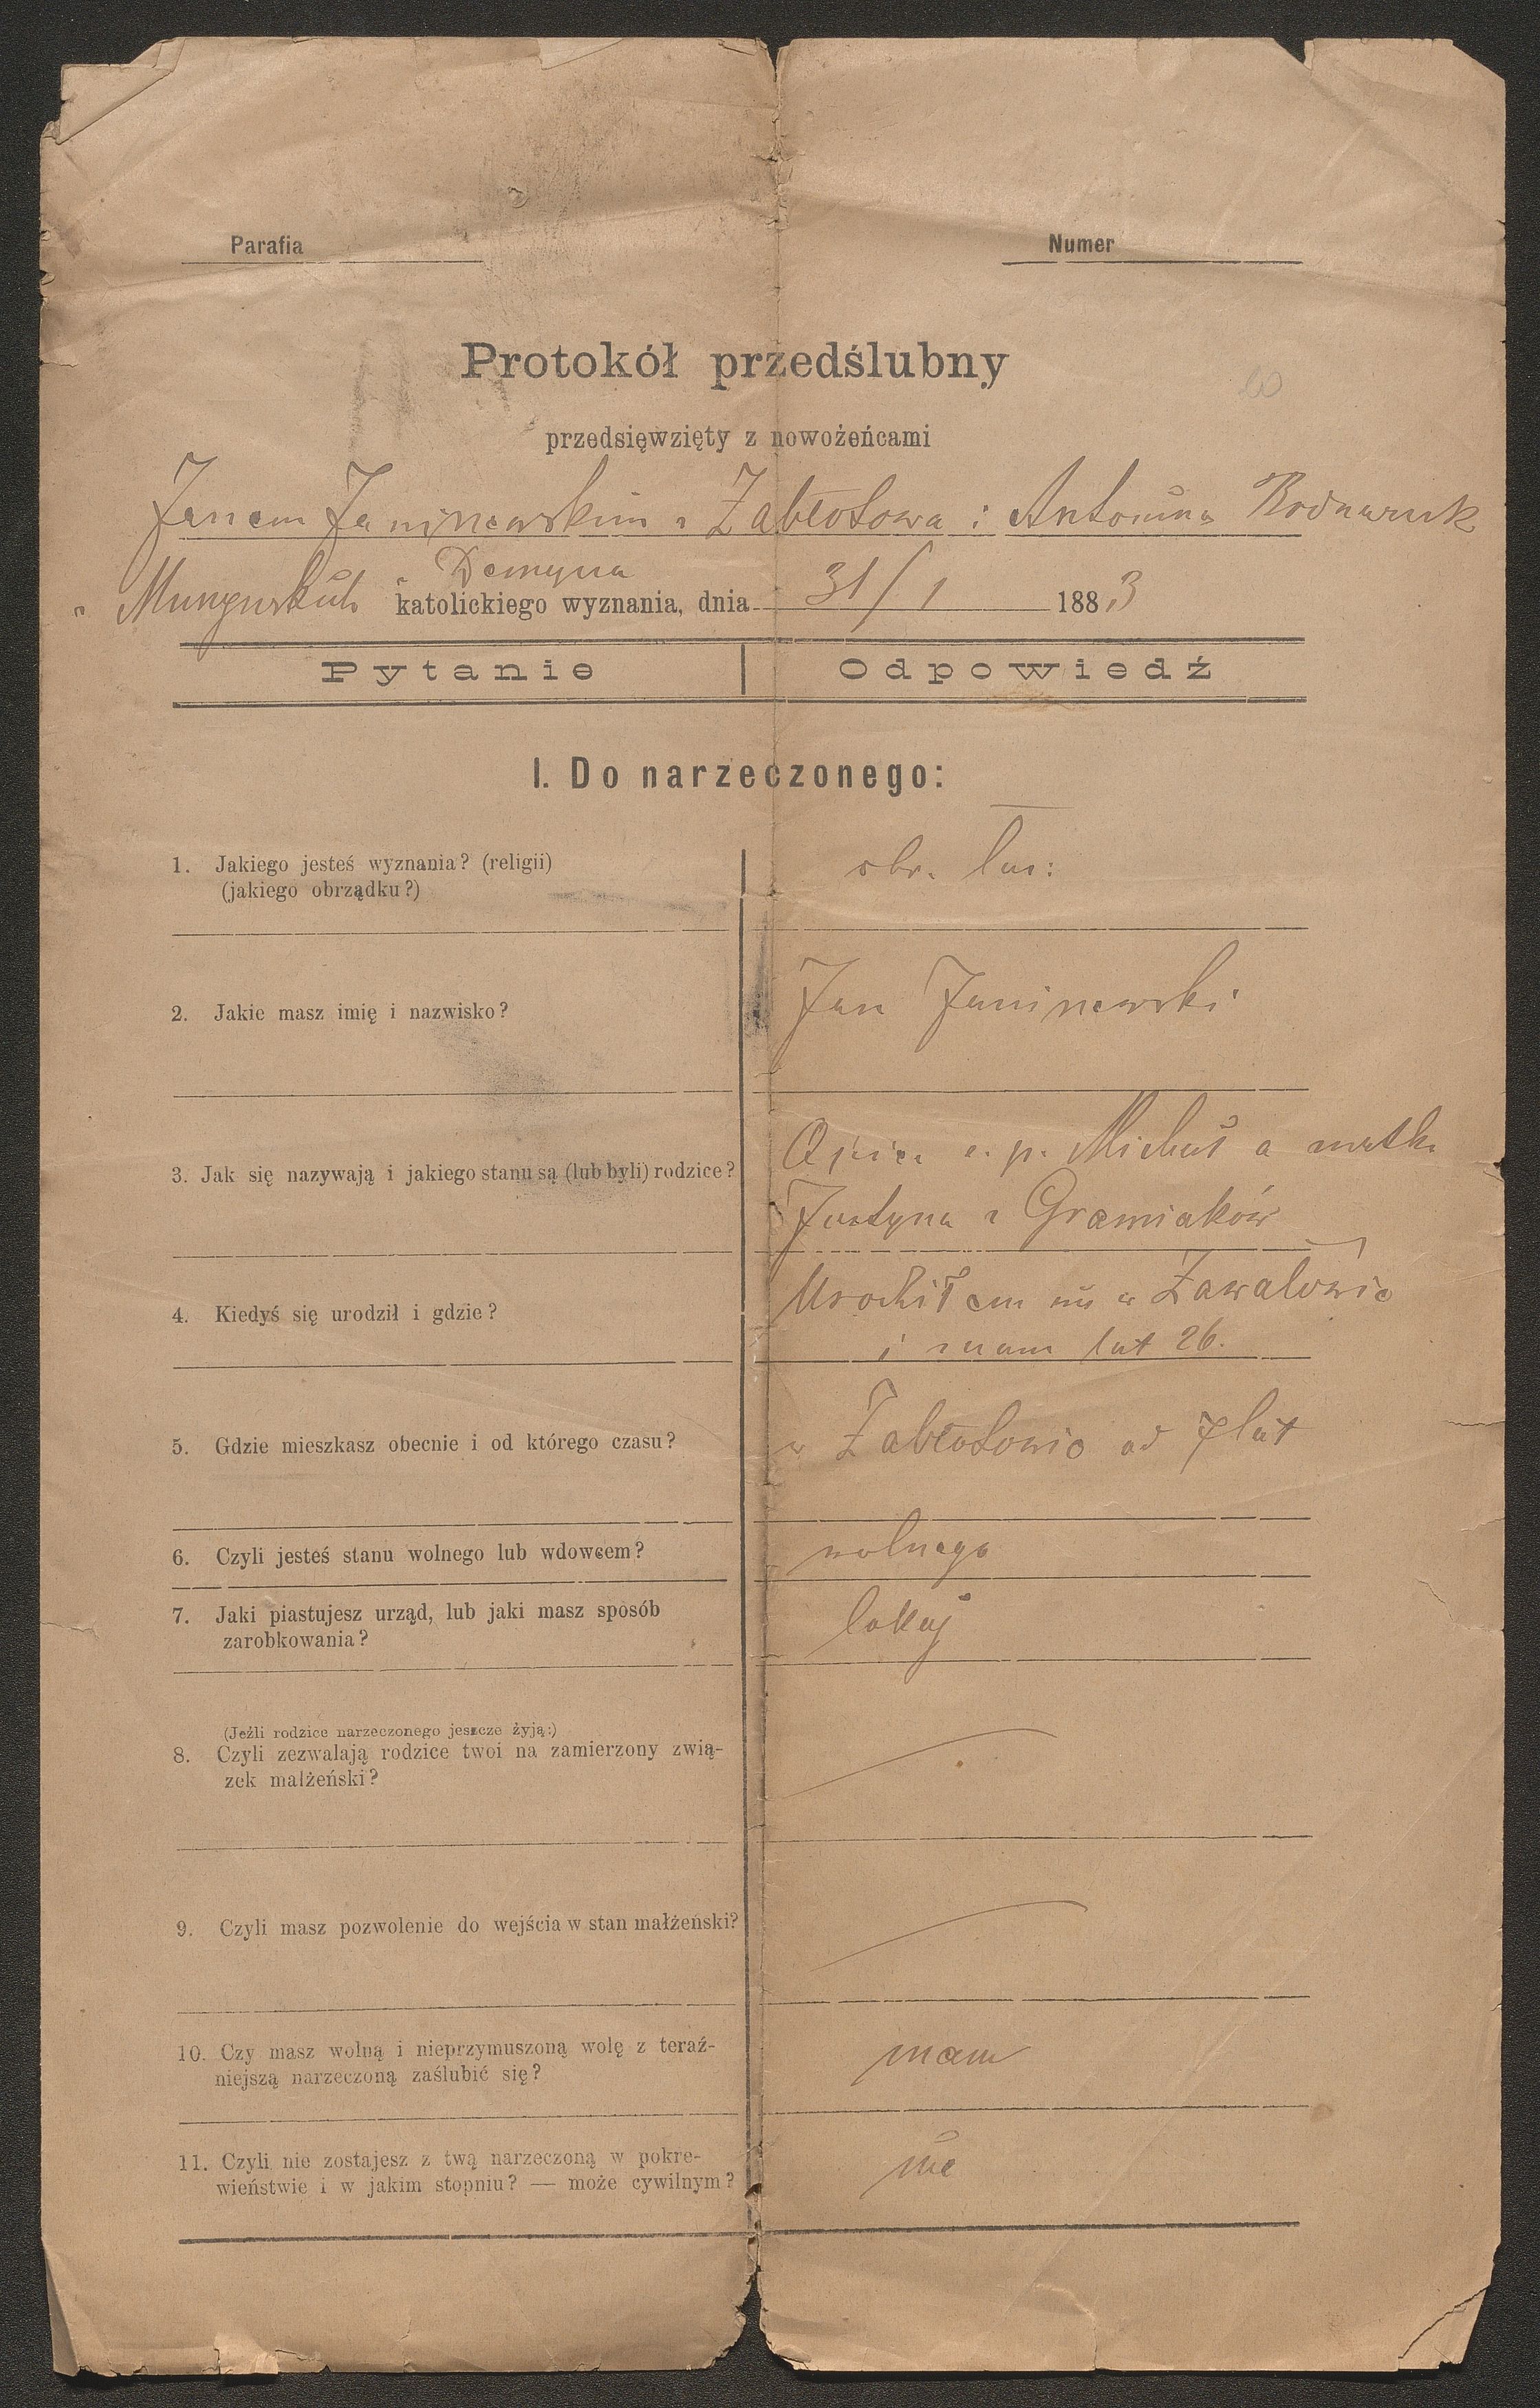 Parafia
Numer
Protokół przedślubny
przedsięwzięty z nowożeńcami
Janem z Zabłotowa i Antoniną
katolickiego wyznania, dnia 31/1 1883
Pytanie
Odpowiedź
I. Do narzeczonego:
1. Jakiego jesteś wyznania? (religii)
(jakiego obrządku?)
obr. łac:
2. Jakie masz imię i nazwisko?
Jan
3. Jak się nazywają i jakiego stanu są (lub byli) rodzice?
Ojciec ś. p. Michał a matka
Justyna z Gramiaków
4. Kiedyś się urodził i gdzie?
Urodziłem się w Zawałowie
i mam lat 26.
5. Gdzie mieszkasz obecnie i od którego czasu?
w Zabłotowie od 7 lat
6. Czyli jesteś stanu wolnego lub wdowcem?
wolnego
7. Jaki piastujesz urząd, lub jaki masz sposób
zarobkowania?
lokaj
(Jeżli rodzice narzeczonego jeszcze żyją:)
8. Czyli zezwalają rodzice twoi na zamierzony zwią-
zek małżeński?
9. Czyli masz pozwolenie do wejścia w stan małżeński?
10. Czy masz wolną i nieprzymuszoną wolę z teraź-
niejszą narzeczoną zaślubić się?
mam
11. Czyli nie zostajesz z twą narzeczoną w pokre-
wieństwie i w jakim stopniu? — może cywilnym?
nie